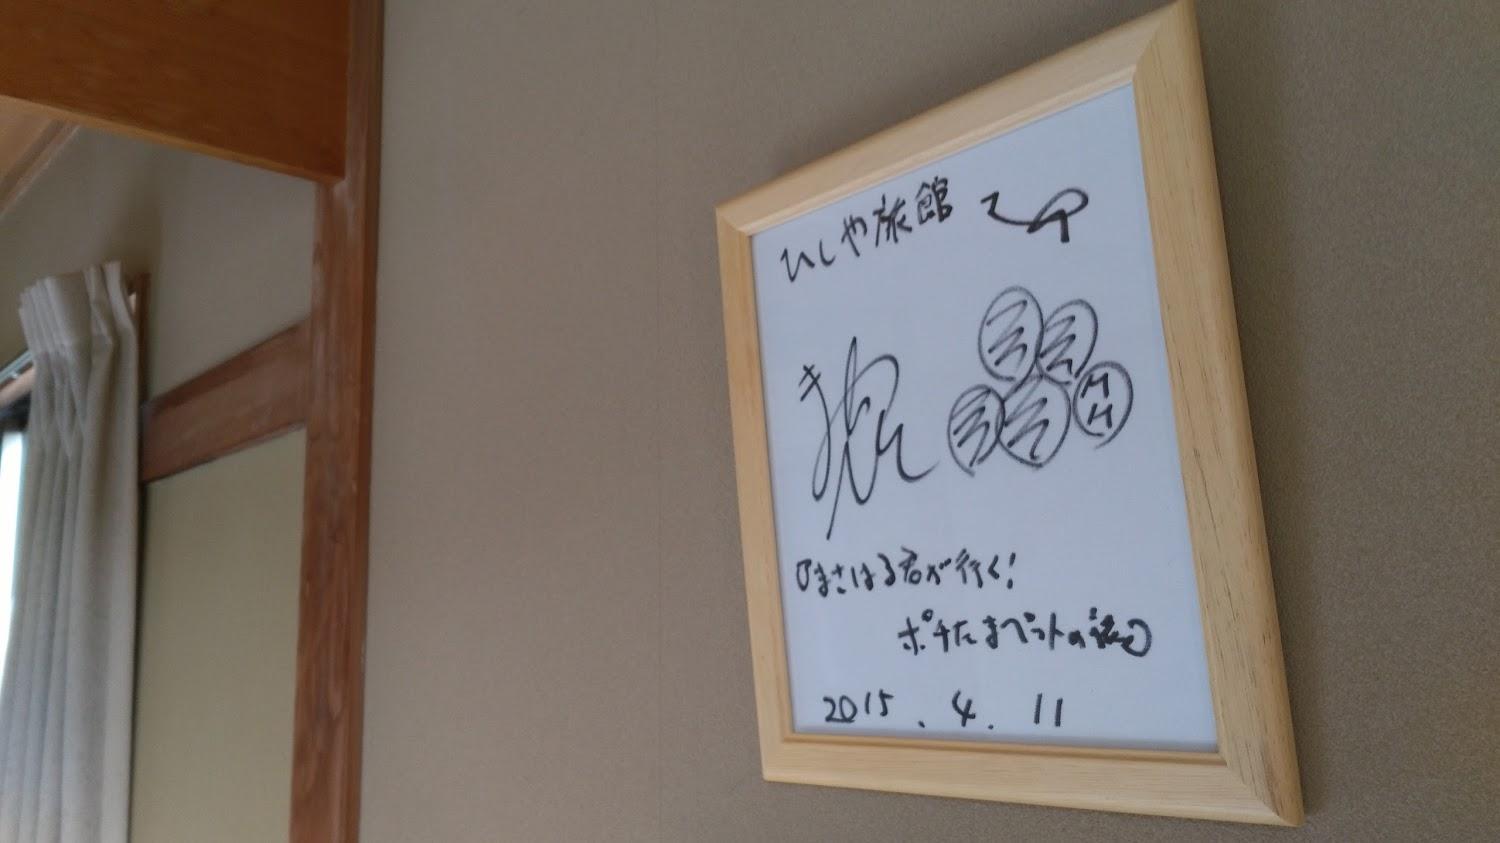 ひしや旅館
『まさはる君が行く!
ポチたまペットの旅』
2015.4.11